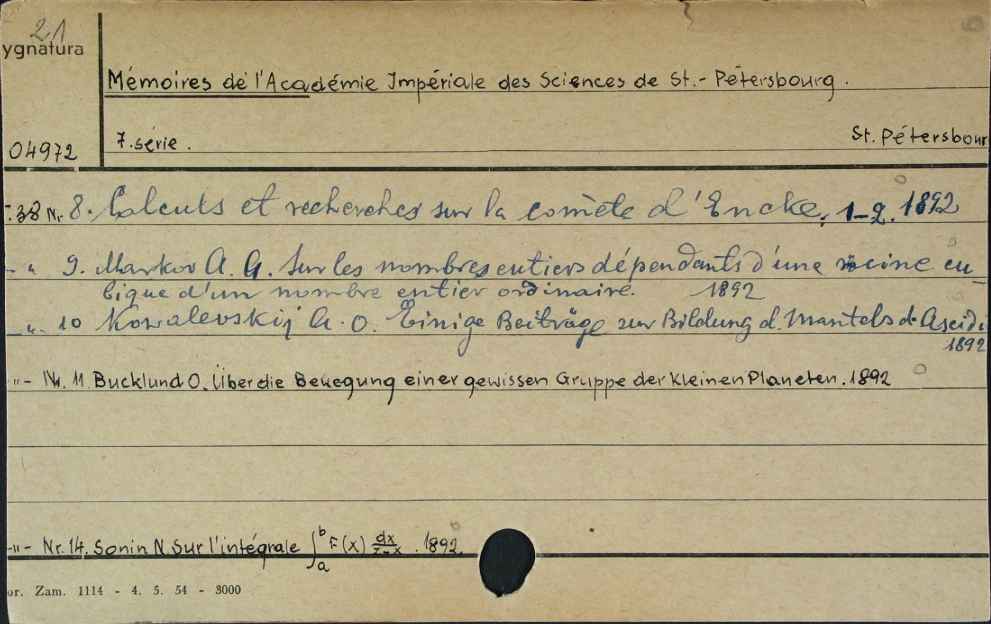 21
ygnatura
Mémoires de l'Académie Impériale des Sciences de St.-Pétersbourg.
04972 7. série. St. Pétersbour
T.38 Nr. 8. Calculs et recherches sur la comète d'Encke, 1-2. 1892
-"- 9. Markov A. A. Sur les nombres entiers dépendants d'une racine cu-
bique d'un nombre entier ordinaire. 1892
-"- 10 Kowalevskij A. O. Einige Beiträge zur Bildung d. Mantels d. Ascidi
1892
-"- Nr. 11 Bucklund O. Über die Bewegung einer gewissen Gruppe der kleinen Planeten. 1892
-"- Nr. 14. Sonin N Sur l'intégrale ∫ₐᵇ F(x) dx/z-x . 1892.
or. Zam. 1114 - 4. 5. 54 - 3000